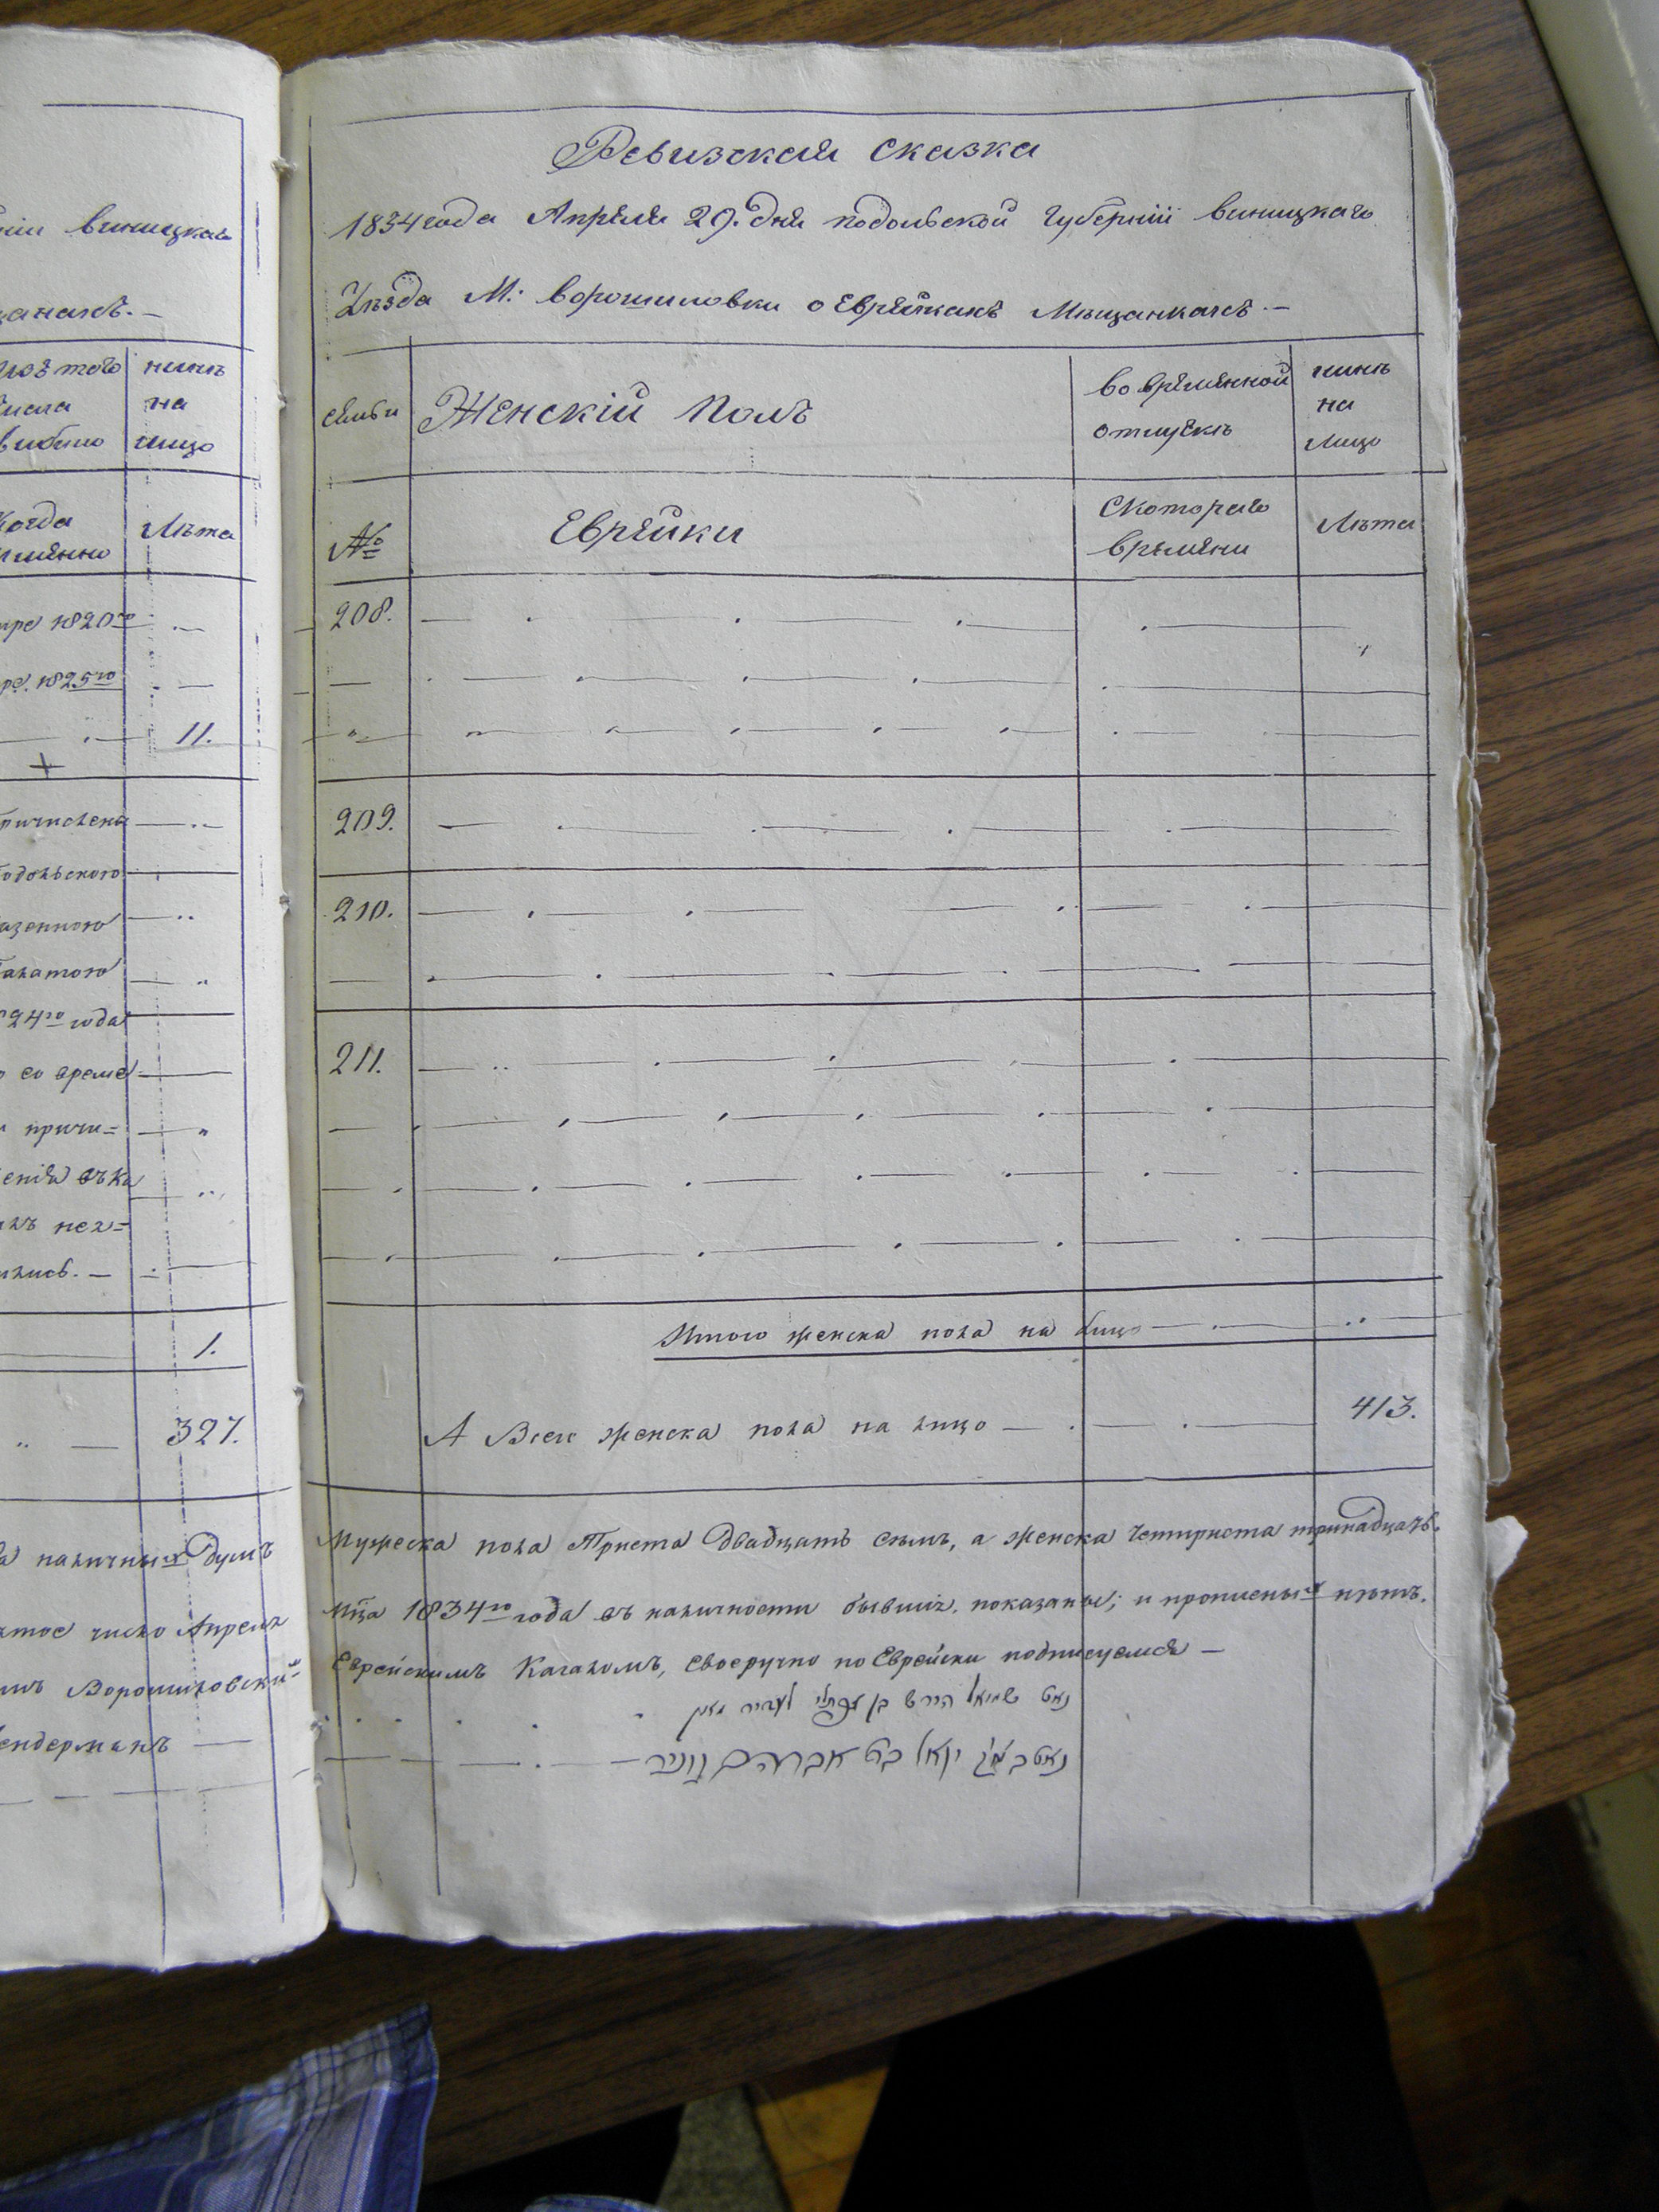 винницкаго
нынѣ
числа на
выбыло лицо
Когда
имянно Лѣта
1820го
1825го
11.
причислены
Подольскою
казенною
палатою
1824го года
со време
причи=
1.
327.
наличныхъ Душъ
число Апреля
Ворошиловскимъ
Ревизская сказка
1834 года Апреля 29. дня подольской губерніи виницкаго
Уѣзда М: Ворошиловки о Еврейкахъ Мѣщанкахъ. —
семьи Женскій Полъ во временной отлучкѣ нынѣ на лицо
№ Еврейки С котораго времени Лѣта
208.
209.
210.
211.
Итого женска пола на лицо
А Всего женска пола на лицо 413.
Мужеска пола Триста Двадцать семь, а женска Четыриста тринадцать.
Мца 1834го года въ наличности бывшія, показаны; и прописныхъ нѣтъ.
Еврейскимъ Кагаломъ, своеручно по Еврейски подписуемся —
נאם שמואל הירש בן
נאם יואל אברהם